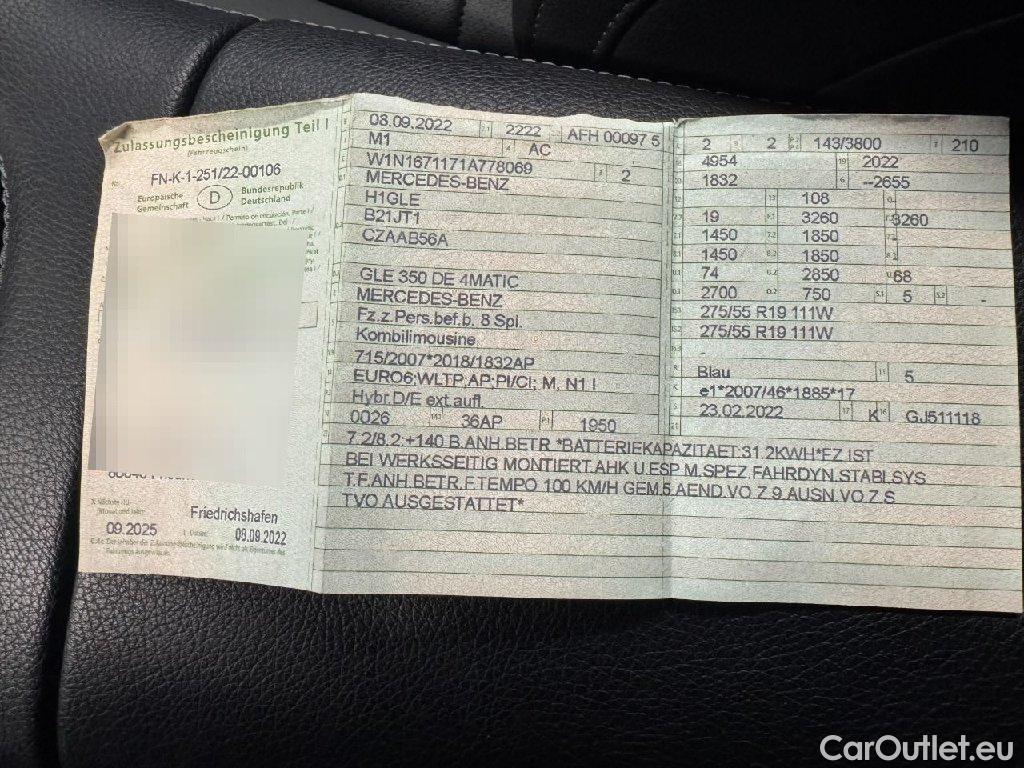 Zulassungsbescheinigung Teil I
(Fahrzeugschein)
Nr. FN-K-1-251/22-00106
Europäische Gemeinschaft
D
Bundesrepublik Deutschland
X Nächste HU
Monat und Jahr
09.2025
Friedrichshafen
I Datum
08.09.2022
08.09.2022 2222 AFH 00097 5
M1 AC
W1N1671171A778069 2
MERCEDES-BENZ
H1GLE
B21JT1
CZAAB56A
GLE 350 DE 4MATIC
MERCEDES-BENZ
Fz.z.Pers.bef.b. 8 Spl.
Kombilimousine
715/2007*2018/1832AP
EURO6;WLTP;AP;PI/CI; M, N1 I
Hybr.D/E ext.aufl.
0026 36AP 1950
2 2 143/3800 210
4954 2022
1832 --2655
108
19 3260 3260
1450 1850 -
1450 1850 -
74 2850 68
2700 750 5 -
275/55 R19 111W
275/55 R19 111W
-
Blau 5
e1*2007/46*1885*17
23.02.2022 K GJ511118
7.2/8.2:+140 B.ANH.BETR *BATTERIEKAPAZITAET:31,2KWH*FZ.IST
BEI WERKSSEITIG MONTIERT.AHK U.ESP M.SPEZ.FAHRDYN.STABI.SYS
T.F.ANH.BETR.F.TEMPO 100 KM/H GEM.5.AEND.VO.Z.9.AUSN.VO.Z.S
TVO AUSGESTATTET*
CarOutlet.eu